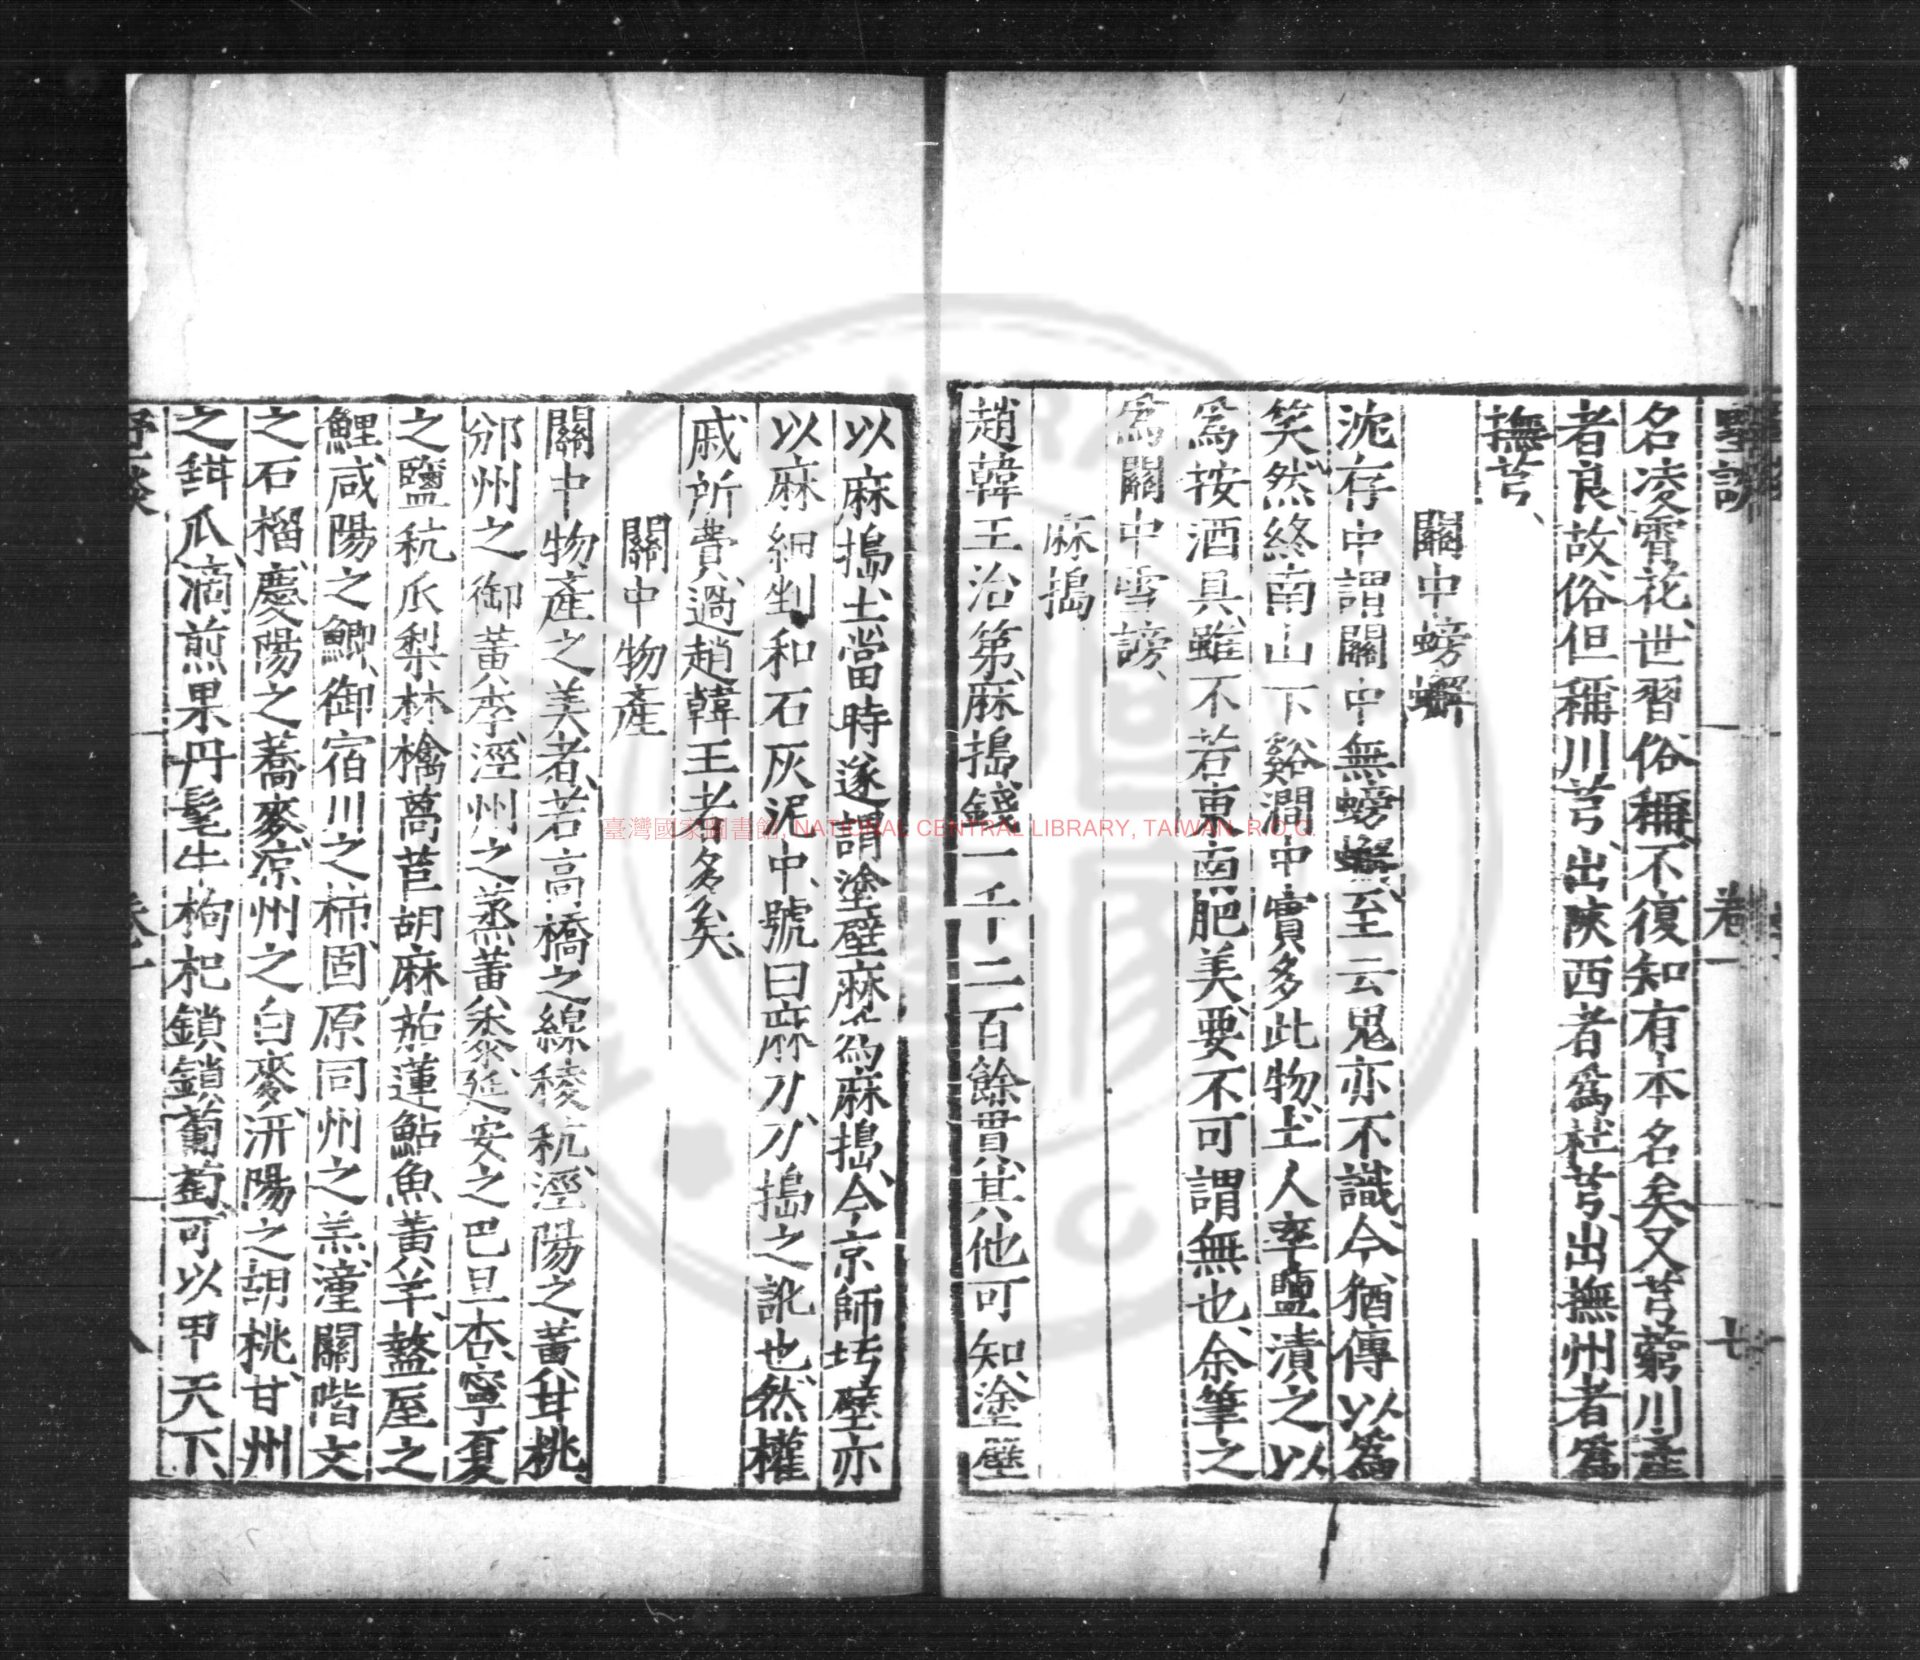 名凌霄花世習俗稱不復知有本名矣又芎藭川產
者良故俗但稱川芎出陝西者爲杜芎出撫州者爲
撫芎
關中螃蠏
沈存中謂關中無螃蠏至云鬼亦不識今猶傳以爲
笑然終南山下谿澗中實多此物土人率鹽漬之以
爲按酒具雖不若東南肥美要不可謂無也余筆之
爲關中雪謗
麻搗
趙韓王治第麻搗錢一千二百餘貫其他可知塗壁
以麻搗土當時遂謂塗壁麻爲麻搗今京師圬壁亦
以麻細剉和石灰泥中號曰麻刀刀搗之訛也然權
戚所費過趙韓王者多矣
關中物產
關中物產之美者若高橋之線稜秔涇陽之黃甘桃
邠州之御黃李涇州之蒸黃黍延安之巴旦杏寧夏
之鹽秔瓜梨林檎萵苣胡麻茄蓮鮎魚黃羊盩厔之
鯉咸陽之鯽御宿川之柿固原同州之羔潼關階文
之石榴慶陽之蕎麥凉州之白麥汧陽之胡桃甘州
之甜瓜滴煎果丹髦牛枸杞鎖鎖葡萄可以甲天下
卷一
七
臺灣國家圖書館, NATIONAL CENTRAL LIBRARY, TAIWAN, R.O.C.